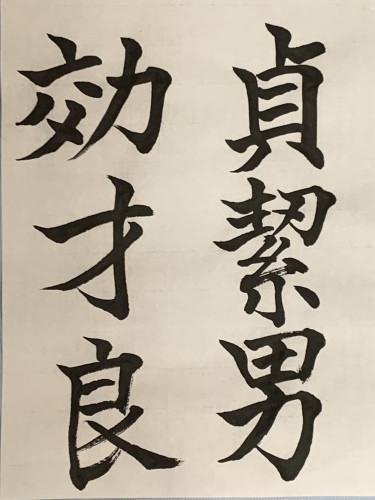 貞絜男
効才良